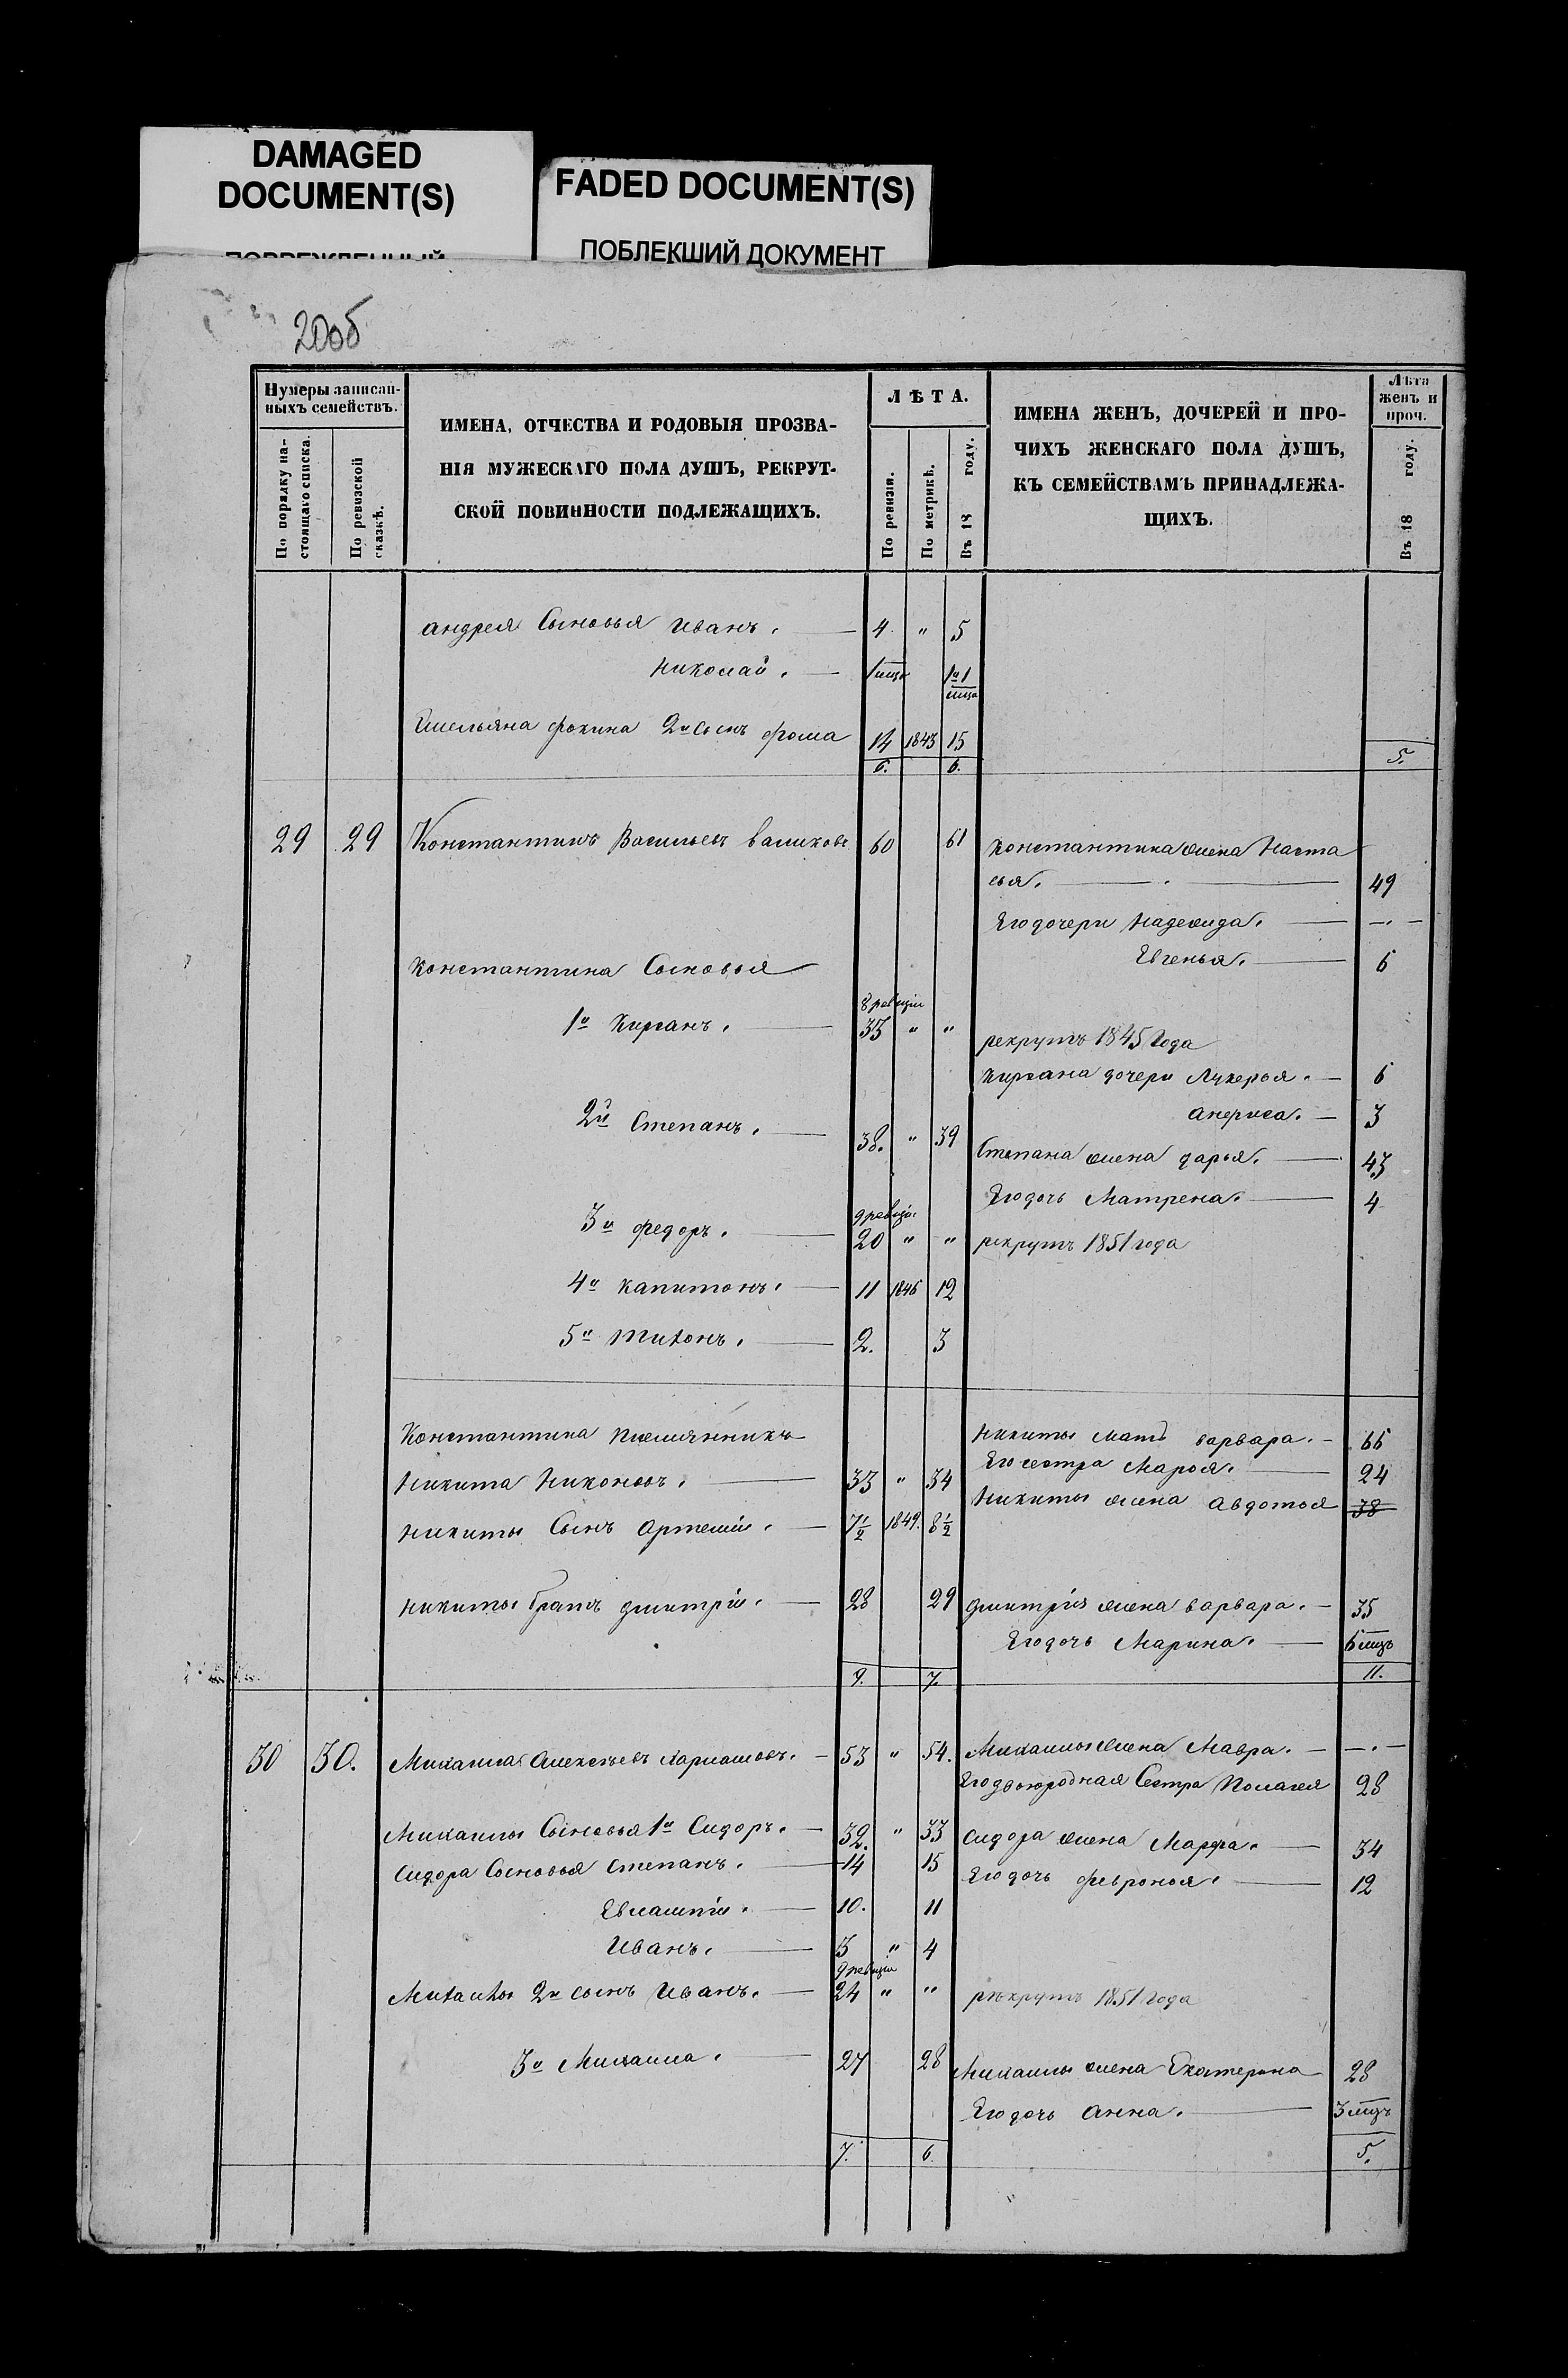 DAMAGED
DOCUMENT(S)
FADED DOCUMENT(S)
ПОБЛЕКШИЙ ДОКУМЕНТ
20об
Нумеры записан-
ныхъ семействъ.
По порядку на-
стоящаго списка.
По ревизской
сказкѣ.
ИМЕНА, ОТЧЕСТВА И РОДОВЫЯ ПРОЗВА-
НІЯ МУЖЕСКАГО ПОЛА ДУШЪ, РЕКРУТ-
СКОЙ ПОВИННОСТИ ПОДЛЕЖАЩИХЪ.
ЛѢТА.
По ревизіи.
По метрикѣ.
Въ 18 году.
ИМЕНА ЖЕНЪ, ДОЧЕРЕЙ И ПРО-
ЧИХЪ ЖЕНСКАГО ПОЛА ДУШЪ,
КЪ СЕМЕЙСТВАМЪ ПРИНАДЛЕЖА-
ЩИХЪ.
Лѣта
женъ и
проч.
Въ 18 году.
андрея Сыновья Иванъ. 4 " 5
Николай. 1 мца 1 и 1 мца
Емельяна фокина 2й Сынъ фома 14 1843 15
6. 6. 5.
29 29 Константинъ Васильевъ 60 61 Константина жена Наста
сья. 49
Его дочери Надежида. —.—
Евгенья. 6
Константина Сыновья
8 ревизіи
1й Кирсанъ. 35 " " рекрутъ 1845 Года
Кирсана дочери Лукерья. 6
анфиса. 3
2й Степанъ. 38. " 39 Степана жена дарья. 43
Его дочь Матрена. 4
9 ревизіи
3й федоръ. 20 " " рекрутъ 1851 года
4й Капитонъ. 11 1846 12
5й Тихонъ. 2. 3
Константина племянникъ Никиты мать варвара. 66
Никита Никоновъ. 33 " 34 Его сестра Марья. 24
Никиты Сынъ Артемій. 7½ 1849. 8½ Никиты жена Авдотья 38
Никиты братъ дмитрій. 28 29 дмитрія жена варвара. 35
Его дочь Марина. 6 мцъ
9. 7. 11.
30 30. Михаила Алексѣевъ 53 " 54. Михаилы жена Мавра. —.—
Его двоюродная Сестра Пелагея 28
Михаилы Сыновья 1й Сидоръ. 32. " 33 Сидора жена Марфа. 34
Сидора Сыновья Степанъ. 14 15 Его дочь февронья. 12
Евлампій. 10. 11
Иванъ. 3 " 4
9 ревизіи
Михаилы 2й сынъ Иванъ. 24 " " рекрутъ 1851 года
3й Михаила. 27 28 Михаилы жена Екатерина 28
Его дочь Анна. 3 мцъ
7. 6. 5.